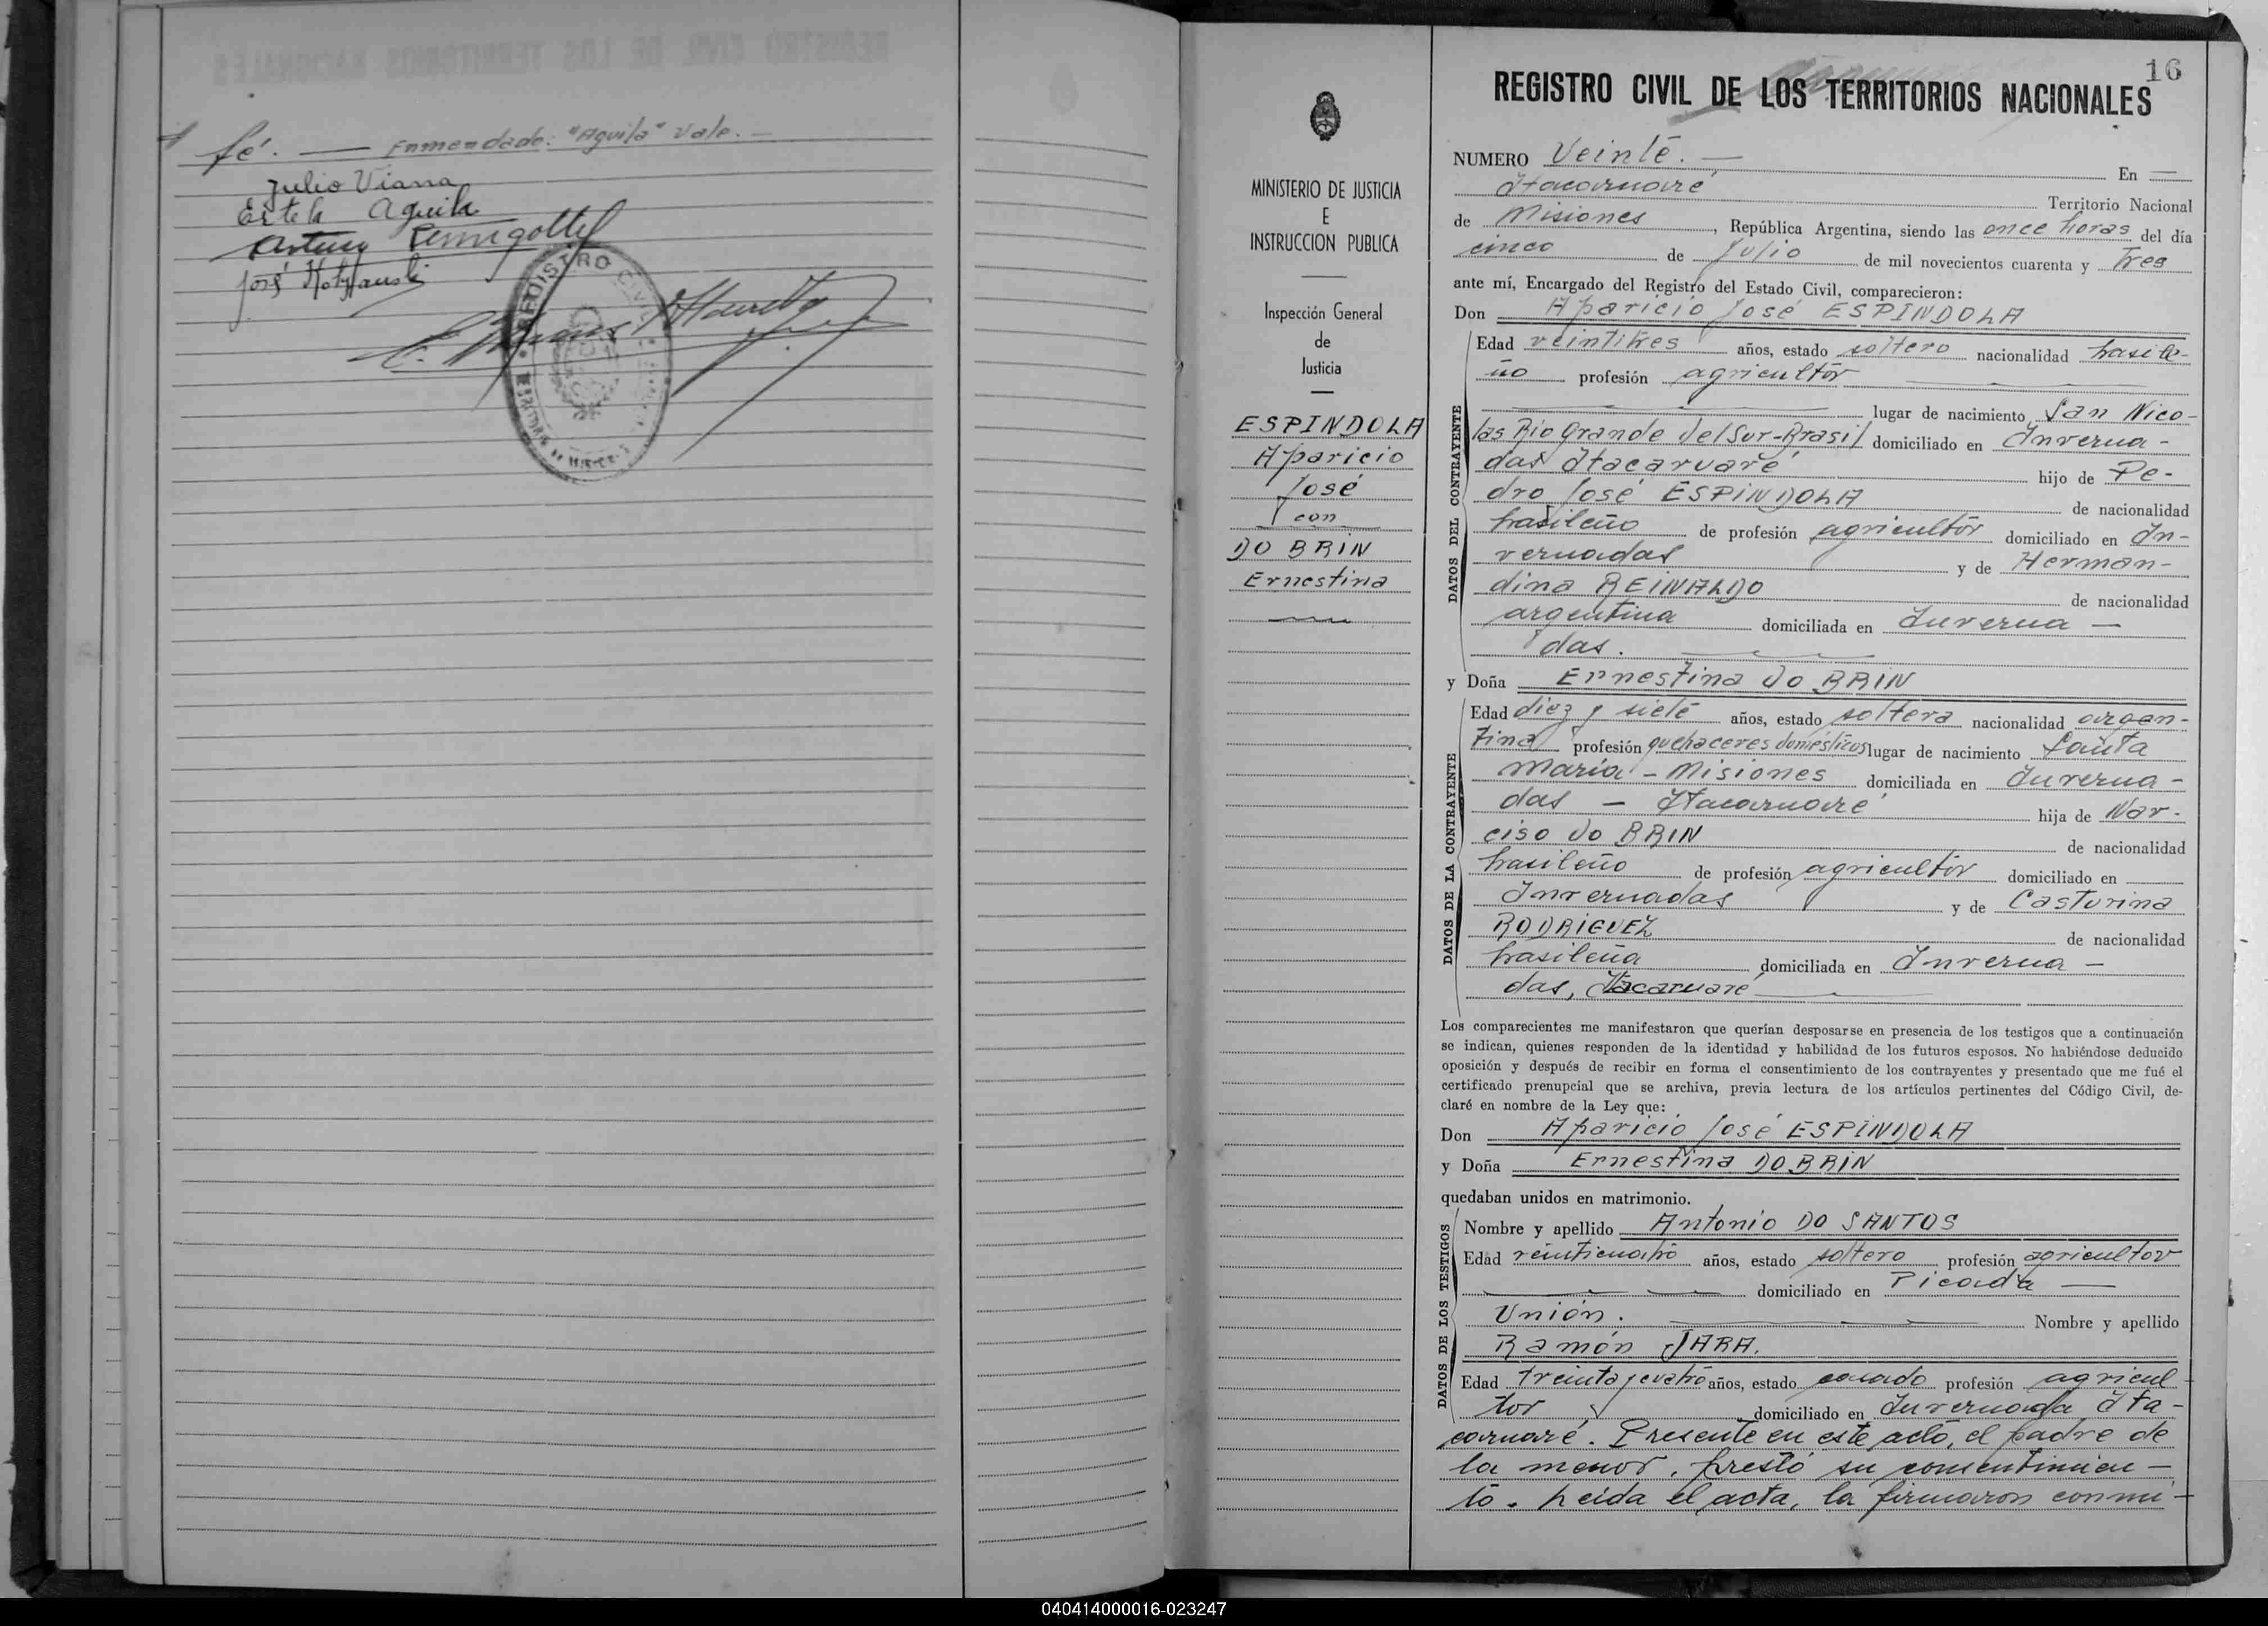 fé. — Enmendado: "Aguila" Vale. —
Julio Viana
Estela Aguila
Arturo
José
REGISTRO CIVIL
MINISTERIO DE JUSTICIA
E
INSTRUCCION PUBLICA
Inspección General
de
Justicia
ESPINDOLA
Aparicio
José
con
DO BRIN
Ernestina
16
REGISTRO CIVIL DE LOS TERRITORIOS NACIONALES
NUMERO Veinte. — En —
Itacaruaré Territorio Nacional
de Misiones, República Argentina, siendo las once horas del día
cinco de Julio de mil novecientos cuarenta y tres
ante mí, Encargado del Registro del Estado Civil, comparecieron:
Don Aparicio José ESPINDOLA
DATOS DEL CONTRAYENTE
Edad veintitres años, estado soltero nacionalidad brasile-
ño profesión agricultor
lugar de nacimiento San Nico-
las Rio Grande del Sur-Brasil domiciliado en Inverna-
das Itacaruaré hijo de Pe-
dro José ESPINDOLA de nacionalidad
brasileño de profesión agricultor domiciliado en In-
vernadas y de Herman-
dina REINALDO de nacionalidad
argentina domiciliada en Inverna —
das.
y Doña Ernestina do BRIN
DATOS DE LA CONTRAYENTE
Edad diez y siete años, estado soltera nacionalidad argen-
tina profesión quehaceres domésticos lugar de nacimiento Santa
María - Misiones domiciliada en Inverna-
das — Itacaruaré hija de Nar-
ciso do BRIN de nacionalidad
brasileño de profesión agricultor domiciliado en
Invernadas y de Casturina
RODRIGUEZ de nacionalidad
brasileña domiciliada en Inverna —
das, Itacaruaré
Los comparecientes me manifestaron que querían desposarse en presencia de los testigos que a continuación
se indican, quienes responden de la identidad y habilidad de los futuros esposos. No habiéndose deducido
oposición y después de recibir en forma el consentimiento de los contrayentes y presentado que me fué el
certificado prenupcial que se archiva, previa lectura de los artículos pertinentes del Código Civil, de-
claré en nombre de la Ley que:
Don Aparicio José ESPINDOLA
y Doña Ernestina DO BRIN
quedaban unidos en matrimonio.
DATOS DE LOS TESTIGOS
Nombre y apellido Antonio DO SANTOS
Edad veinticuatro años, estado soltero profesión agricultor
domiciliado en Picada —
Unión. Nombre y apellido
Ramón JARA.
Edad treinta y cuatro años, estado casado profesión agricul
tor domiciliado en Invernada Ita-
caruaré. Presente en este acto, el padre de
la menor, prestó su consentimien —
to. Leida el acta, la firmaron conmi-
040414000016-023247